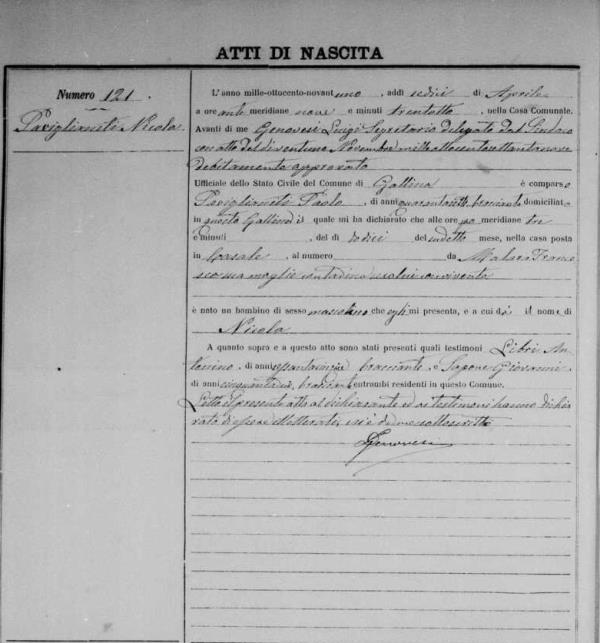 ATTI DI NASCITA
Numero 121.
Paviglianiti Nicola
L'anno mille-ottocento-novantuno, addì sedici di Aprile
a ore anti meridiane nove e minuti trentotto, nella Casa Comunale.
Avanti di me Genovesi Luigi Segretario delegato dal Sindaco
con atto del di ventuno Novembre mille ottocentottantanove
debitamente approvato
Ufficiale dello Stato Civile del Comune di Gallina è comparso
Paviglianiti Paolo, di anni quarantasette, bracciante domiciliato
in questo Gallina il quale mi ha dichiarato che alle ore po meridiane tre
e minuti , del dì dodici del suddetto mese, nella casa posta
in Casale al numero da Franc
esca sua moglie contadina seco lui convivente
è nato un bambino di sesso mascolino che egli mi presenta, e a cui dà il nome di
Nicola
A quanto sopra e a questo atto sono stati presenti quali testimoni Libri An
tonino, di anni bracciante, e Sapone Giovanni
di anni cinquanta bracciante entrambi residenti in questo Comune.
Letto il presente atto al dichiarante ed ai testimoni hanno dichia
rato di essere illetterati, si è da me sottoscritto
Genovesi